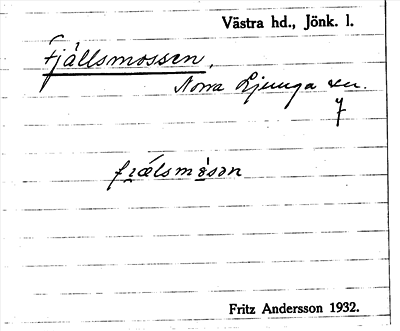 Västra hd., Jönk. l.
Fjällsmossen.
Norra Ljunga sn.
7
Fritz Andersson 1932.